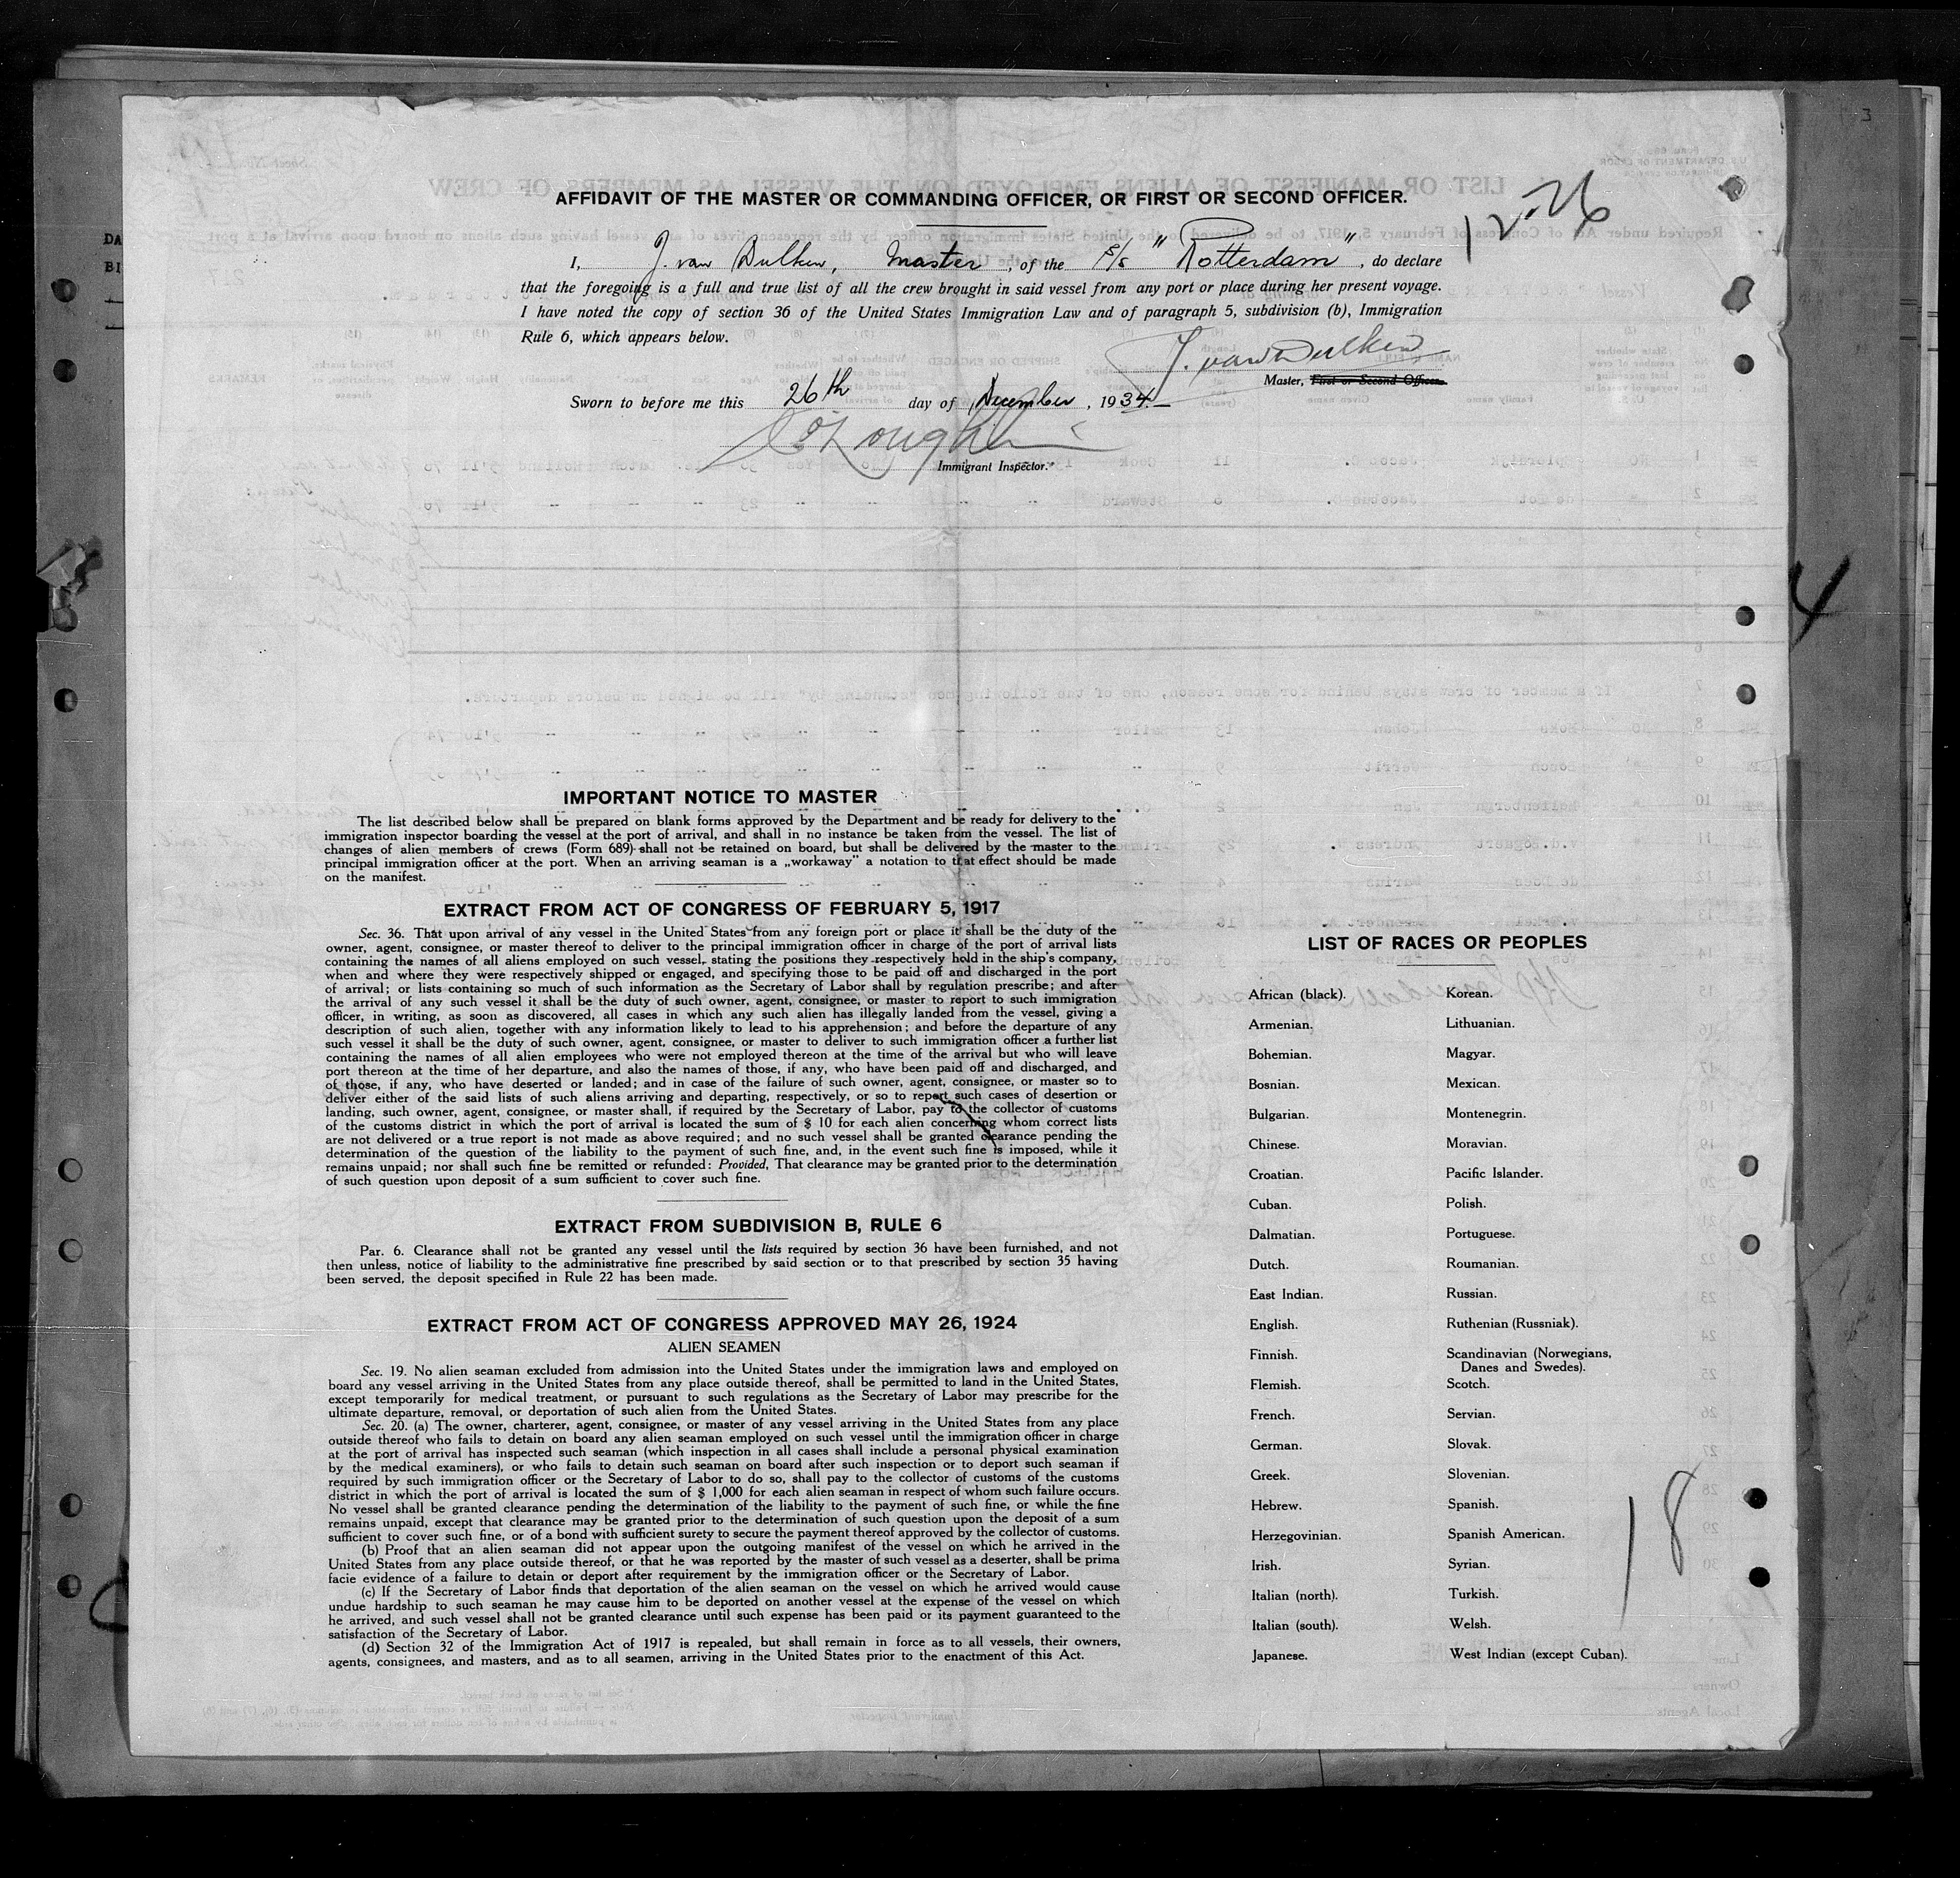 AFFIDAVIT OF THE MASTER OR COMMANDING OFFICER, OR FIRST OR SECOND OFFICER.
12-26
I, J. van Dulken, Master, of the S/S "Rotterdam", do declare
that the foregoing is a full and true list of all the crew brought in said vessel from any port or place during her present voyage.
I have noted the copy of section 36 of the United States Immigration Law and of paragraph 5, subdivision (b), Immigration
Rule 6, which appears below.
J. van Dulken
Master, First or Second Officer.
Sworn to before me this 26th day of December, 1934.
Immigrant Inspector.
4
IMPORTANT NOTICE TO MASTER
The list described below shall be prepared on blank forms approved by the Department and be ready for delivery to the
immigration inspector boarding the vessel at the port of arrival, and shall in no instance be taken from the vessel. The list of
changes of alien members of crews (Form 689) shall not be retained on board, but shall be delivered by the master to the
principal immigration officer at the port. When an arriving seaman is a „workaway" a notation to that effect should be made
on the manifest.
EXTRACT FROM ACT OF CONGRESS OF FEBRUARY 5, 1917
Sec. 36. That upon arrival of any vessel in the United States from any foreign port or place it shall be the duty of the
owner, agent, consignee, or master thereof to deliver to the principal immigration officer in charge of the port of arrival lists
containing the names of all aliens employed on such vessel, stating the positions they respectively hold in the ship's company,
when and where they were respectively shipped or engaged, and specifying those to be paid off and discharged in the port
of arrival; or lists containing so much of such information as the Secretary of Labor shall by regulation prescribe; and after
the arrival of any such vessel it shall be the duty of such owner, agent, consignee, or master to report to such immigration
officer, in writing, as soon as discovered, all cases in which any such alien has illegally landed from the vessel, giving a
description of such alien, together with any information likely to lead to his apprehension; and before the departure of any
such vessel it shall be the duty of such owner, agent, consignee, or master to deliver to such immigration officer a further list
containing the names of all alien employees who were not employed thereon at the time of the arrival but who will leave
port thereon at the time of her departure, and also the names of those, if any, who have been paid off and discharged, and
of those, if any, who have deserted or landed; and in case of the failure of such owner, agent, consignee, or master so to
deliver either of the said lists of such aliens arriving and departing, respectively, or so to report such cases of desertion or
landing, such owner, agent, consignee, or master shall, if required by the Secretary of Labor, pay to the collector of customs
of the customs district in which the port of arrival is located the sum of $ 10 for each alien concerning whom correct lists
are not delivered or a true report is not made as above required; and no such vessel shall be granted clearance pending the
determination of the question of the liability to the payment of such fine, and, in the event such fine is imposed, while it
remains unpaid; nor shall such fine be remitted or refunded: Provided, That clearance may be granted prior to the determination
of such question upon deposit of a sum sufficient to cover such fine.
EXTRACT FROM SUBDIVISION B, RULE 6
Par. 6. Clearance shall not be granted any vessel until the lists required by section 36 have been furnished, and not
then unless, notice of liability to the administrative fine prescribed by said section or to that prescribed by section 35 having
been served, the deposit specified in Rule 22 has been made.
EXTRACT FROM ACT OF CONGRESS APPROVED MAY 26, 1924
ALIEN SEAMEN
Sec. 19. No alien seaman excluded from admission into the United States under the immigration laws and employed on
board any vessel arriving in the United States from any place outside thereof, shall be permitted to land in the United States,
except temporarily for medical treatment, or pursuant to such regulations as the Secretary of Labor may prescribe for the
ultimate departure, removal, or deportation of such alien from the United States.
Sec. 20. (a) The owner, charterer, agent, consignee, or master of any vessel arriving in the United States from any place
outside thereof who fails to detain on board any alien seaman employed on such vessel until the immigration officer in charge
at the port of arrival has inspected such seaman (which inspection in all cases shall include a personal physical examination
by the medical examiners), or who fails to detain such seaman on board after such inspection or to deport such seaman if
required by such immigration officer or the Secretary of Labor to do so, shall pay to the collector of customs of the customs
district in which the port of arrival is located the sum of $ 1,000 for each alien seaman in respect of whom such failure occurs.
No vessel shall be granted clearance pending the determination of the liability to the payment of such fine, or while the fine
remains unpaid, except that clearance may be granted prior to the determination of such question upon the deposit of a sum
sufficient to cover such fine, or of a bond with sufficient surety to secure the payment thereof approved by the collector of customs.
(b) Proof that an alien seaman did not appear upon the outgoing manifest of the vessel on which he arrived in the
United States from any place outside thereof, or that he was reported by the master of such vessel as a deserter, shall be prima
facie evidence of a failure to detain or deport after requirement by the immigration officer or the Secretary of Labor.
(c) If the Secretary of Labor finds that deportation of the alien seaman on the vessel on which he arrived would cause
undue hardship to such seaman he may cause him to be deported on another vessel at the expense of the vessel on which
he arrived, and such vessel shall not be granted clearance until such expense has been paid or its payment guaranteed to the
satisfaction of the Secretary of Labor.
(d) Section 32 of the Immigration Act of 1917 is repealed, but shall remain in force as to all vessels, their owners,
agents, consignees, and masters, and as to all seamen, arriving in the United States prior to the enactment of this Act.
LIST OF RACES OR PEOPLES
African (black).
Armenian.
Bohemian.
Bosnian.
Bulgarian.
Chinese.
Croatian.
Cuban.
Dalmatian.
Dutch.
East Indian.
English.
Finnish.
Flemish.
French.
German.
Greek.
Hebrew.
Herzegovinian.
Irish.
Italian (north).
Italian (south).
Japanese.
Korean.
Lithuanian.
Magyar.
Mexican.
Montenegrin.
Moravian.
Pacific Islander.
Polish.
Portuguese.
Roumanian.
Russian.
Ruthenian (Russniak).
Scandinavian (Norwegians,
Danes and Swedes).
Scotch.
Servian.
Slovak.
Slovenian.
Spanish.
Spanish American.
Syrian.
Turkish.
Welsh.
West Indian (except Cuban).
18